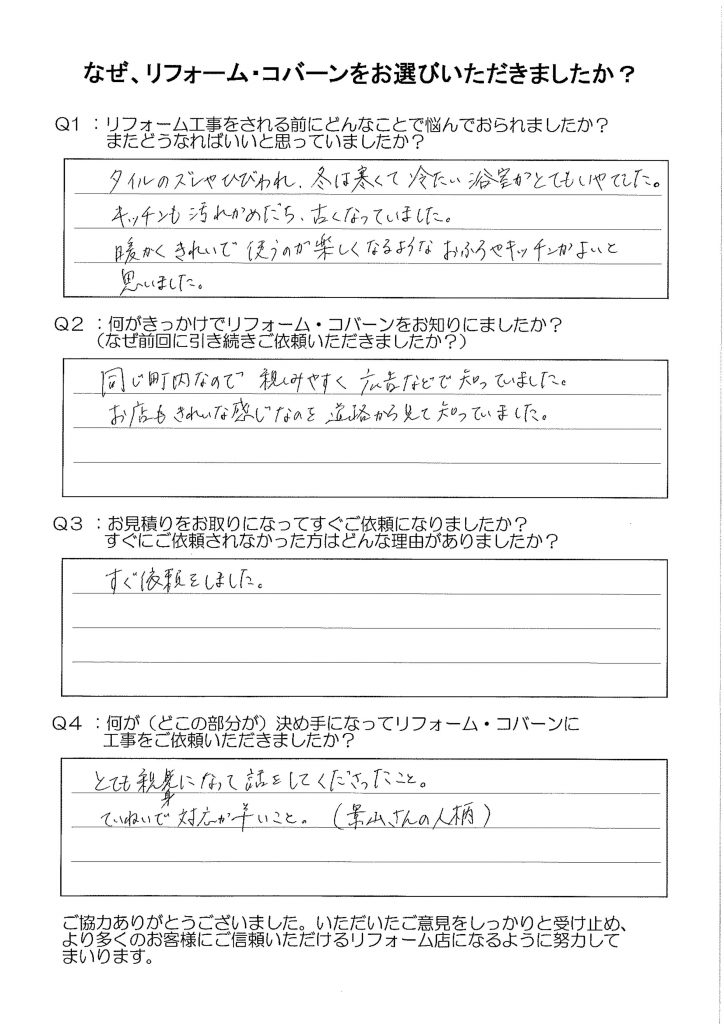 なぜ、リフォーム・コバーンをお選びいただきましたか？
Q１：リフォーム工事をされる前にどんなことで悩んでおられましたか？
またどうなればいいと思っていましたか？
タイルのズレやひびわれ、冬は寒くて冷たい浴室がとてもいやでした。
キッチンも汚れがめだち、古くなっていました。
暖かくきれいで使うのが楽しくなるようなおふろやキッチンがよいと
思いました。
Q２：何がきっかけでリフォーム・コバーンをお知りにましたか？
（なぜ前回に引き続きご依頼いただきましたか？）
同じ町内なので親しみやすく広告などで知っていました。
お店もきれいな感じなのを道路から見て知っていました。
Q３：お見積りをお取りになってすぐご依頼になりましたか？
すぐにご依頼されなかった方はどんな理由がありましたか？
すぐ依頼をしました。
Q４：何が（どこの部分が）決め手になってリフォーム・コバーンに
工事をご依頼いただきましたか？
とても親身になって話をしてくださったこと。
ていねいで対応が早いこと。（景山さんの人柄）
ご協力ありがとうございました。いただいたご意見をしっかりと受け止め、
より多くのお客様にご信頼いただけるリフォーム店になるように努力して
まいります。